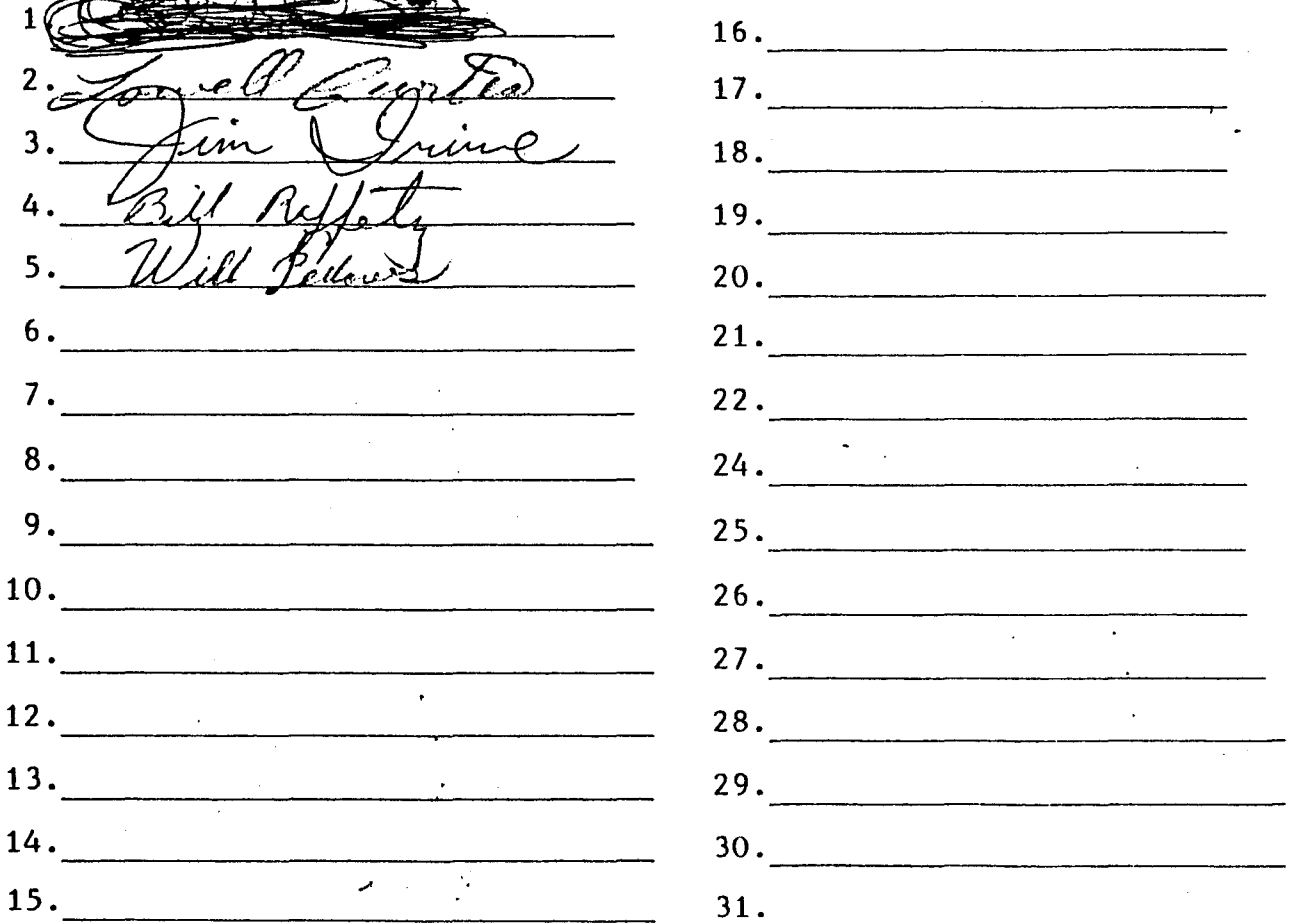 1
2. Lowell Curtis
3. Jim Irvine
4. Bill Raffety
5. Will
6.
7.
8.
9.
10.
11.
12.
13.
14.
15.
16.
17.
18.
19.
20.
21.
22.
24.
25.
26.
27.
28.
29.
30.
31.